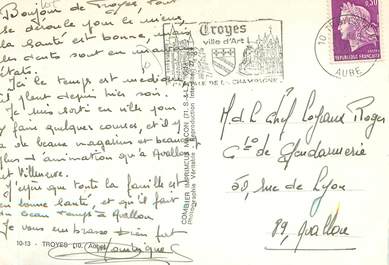 Bonjour de Troyes, tout
se déroule pour le mieux,
la santé est bonne, mais
les dents sont en mauvais
état.
Ici le temps est médiocre,
il pleut depuis hier soir.
Je suis sorti en ville pour
y faire quelques courses, et il y
a de beaux magasins et beaucoup
plus d'animation qu'à Avallon
et Villeneuve.
J'espère que toute la famille est
en bonne santé, et qu'il fait
un beau temps à Avallon.
Je vous embrasse bien fort
10-13 - TROYES (10. Aube)
COMBIER IMPRIMEUR MACON
Photographie Véritable - Reproduction Interdite
Troyes
ville d'Art
DE LA CHAMPAGNE
10 TROYES
AUBE
0,30
REPUBLIQUE FRANÇAISE
M. le Chef Roger
Cie de Gendarmerie
58, rue de Lyon
89, Avallon